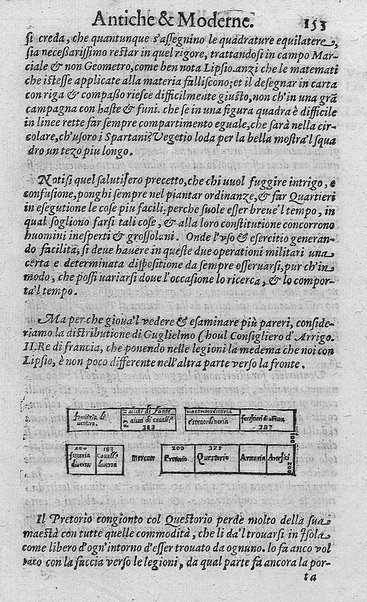 Antiche & Moderne. 153
si creda, che quantunque s'assegnino le quadrature equilatere,
sia necessarissimo restar in quel rigore, trattandosi in campo Mar-
ciale & non Geometro, come ben nota Lipsio. anzi che le matemati
che istesse applicate alla materia falliscono; et il desegnar in carta
con riga & compasso riesce difficilmente giusto, non ch'in una grã
campagna con haste & funi. che se in una figura quadra è difficile
in linee rette far sempre compartimento eguale, che sarà nella cir-
colare, ch'usoro i Spartani? Vegetio loda per la bella mostra'l squa
dro un tezo piu longo.
Notisi quel salutifero precetto, che chi vuol fuggire intrigo, e
confusione, ponghi sempre nel piantar ordinanze, & far Quartieri
in esegutione le cose piu facili; perche suole esser breue'l tempo, in
qual sogliono farsi tali cose, & alla loro constitutione concorrono
huomini inesperti & grossolani. Onde l'uso & esercitio generan-
do facilità, si deue hauere in queste due operationi militari una
certa e determinata dispositione da sempre osseruarsi, pur ch'in
modo, che possi variarsi doue l'occasione lo ricerca, & lo compor-
ta'l tempo.
Ma per che gioua'l vedere & esaminare più pareri, conside-
riamo la distributione di Guglielmo Choul Consigliero d'Arrigo.
II. Re di francia, che ponendo nelle legioni la medema che noi con
Lipsio, è non poco differente nell'altra parte verso la fronte.
extraordinaria
383 387
200 187 200 325
Mercato Pretorio Questorio Armaria Artefici
Il Pretorio congionto col Questorio perde molto della sua
maestà con tutte quelle commodità, che li da'l trouarsi in Isola
come libero d'ogn'intorno d'esser trouato da ognuno. lo fa anco vol
tato con la faccia verso le legioni, da qual parte fa ancora la por-
ta